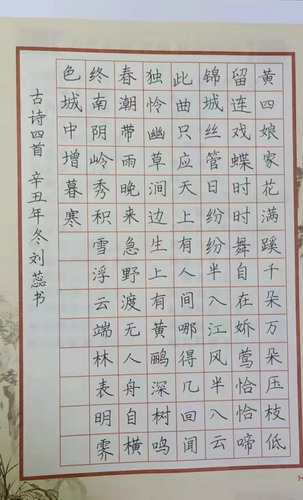 黄四娘家花满蹊千朵万朵压枝低
留连戏蝶时时舞自在娇莺恰恰啼
锦城丝管日纷纷半入江风半入云
此曲只应天上有人间哪得几回闻
独怜幽草涧边生上有黄鹂深树鸣
春潮带雨晚来急野渡无人舟自横
终南阴岭秀积雪浮云端林表明霁
色城中增暮寒
古诗四首 辛丑年冬刘蕊书